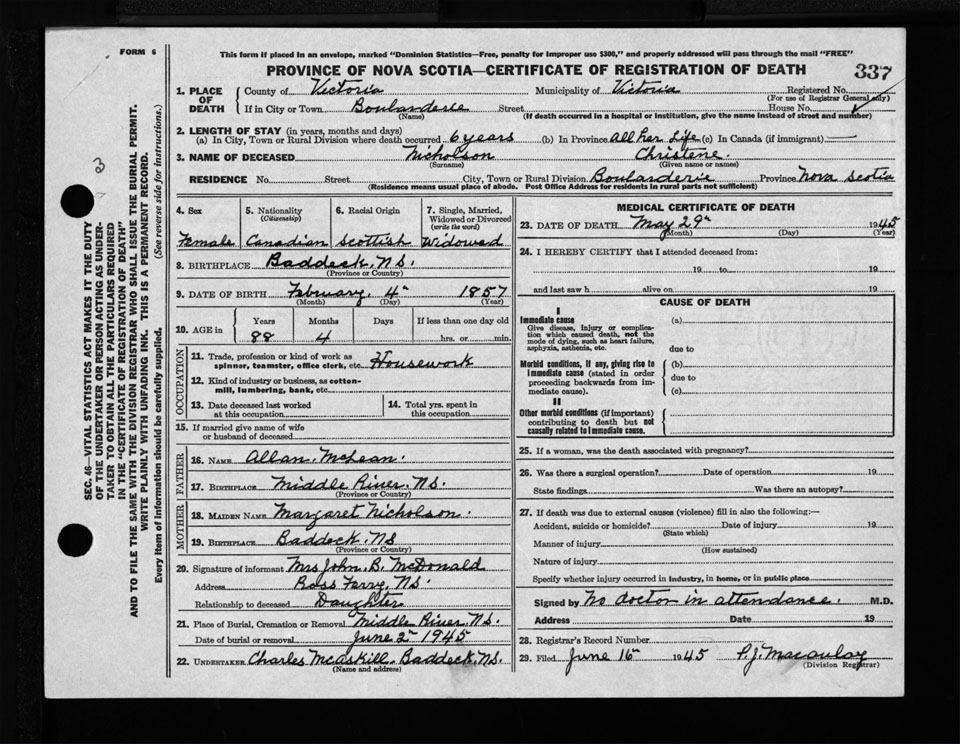 FORM 6
This form if placed in an envelope, marked "Dominion Statistics—Free, penalty for improper use $300," and properly addressed will pass through the mail "FREE"
PROVINCE OF NOVA SCOTIA—CERTIFICATE OF REGISTRATION OF DEATH 337
1. PLACE OF DEATH
County of Victoria Municipality of Victoria Registered No.
(For use of Registrar General only)
If in City or Town Boularderie Street House No.
(Name) (If death occurred in a hospital or institution, give the name instead of street and number)
2. LENGTH OF STAY (in years, months and days)
(a) In City, Town or Rural Division where death occurred 6 years (b) In Province All her Life (c) In Canada (if immigrant)
3. NAME OF DECEASED Nicholson Christene.
(Surname) (Given name or names)
RESIDENCE No. Street City, Town or Rural Division Boularderie Province Nova Scotia
(Residence means usual place of abode. Post Office Address for residents in rural parts not sufficient)
4. Sex 5. Nationality (Citizenship) 6. Racial Origin 7. Single, Married, Widowed or Divorced (write the word)
Female Canadian Scottish Widowad
8. BIRTHPLACE Baddeck. N.S.
(Province or Country)
9. DATE OF BIRTH February. 4th 1857
(Month) (Day) (Year)
10. AGE in Years Months Days If less than one day old
88 4 hrs. or min.
OCCUPATION
11. Trade, profession or kind of work as spinner, teamster, office clerk, etc. Housework
12. Kind of industry or business, as cotton-mill, lumbering, bank, etc.
13. Date deceased last worked at this occupation
14. Total yrs. spent in this occupation
15. If married give name of wife or husband of deceased
FATHER
16. NAME Allan. McLean.
17. BIRTHPLACE Middle River. N.S.
(Province or Country)
MOTHER
18. MAIDEN NAME Margaret Nicholson.
19. BIRTHPLACE Baddeck. N.S
(Province or Country)
20. Signature of informant Mrs John. B. McDonald
Address Ross Ferry. N.S.
Relationship to deceased Daughter
21. Place of Burial, Cremation or Removal Middle River. N.S.
Date of burial or removal June 2nd 1945
22. UNDERTAKER Charles McAskill. Baddeck. N.S.
(Name and address)
MEDICAL CERTIFICATE OF DEATH
23. DATE OF DEATH May 29th 1945
(Month) (Day) (Year)
24. I HEREBY CERTIFY that I attended deceased from:
19 to 19
and last saw h alive on 19
CAUSE OF DEATH
I
Immediate cause (a)
Give disease, injury or complication which caused death, not the mode of dying, such as heart failure, asphyxia, asthenia, etc.
due to
Morbid conditions, if any, giving rise to immediate cause (stated in order proceeding backwards from immediate cause).
(b)
due to
(c)
II
Other morbid conditions (if important) contributing to death but not causally related to immediate cause.
25. If a woman, was the death associated with pregnancy?
26. Was there a surgical operation? Date of operation 19
State findings Was there an autopsy?
27. If death was due to external causes (violence) fill in also the following:—
Accident, suicide or homicide? Date of injury 19
(State which)
Manner of injury
(How sustained)
Nature of injury
Specify whether injury occurred in industry, in home, or in public place
Signed by No doctor in attendance. M.D.
Address Date 19
28. Registrar's Record Number
29. Filed June 16th 1945 P.J. Macaulay
(Division Registrar)
SEC. 46—VITAL STATISTICS ACT MAKES IT THE DUTY
OF THE UNDERTAKER OR PERSON ACTING AS UNDER-
TAKER TO OBTAIN ALL THE PARTICULARS REQUIRED
IN THE "CERTIFICATE OF REGISTRATION OF DEATH"
AND TO FILE THE SAME WITH THE DIVISION REGISTRAR WHO SHALL ISSUE THE BURIAL PERMIT.
WRITE PLAINLY WITH UNFADING INK. THIS IS A PERMANENT RECORD.
Every item of information should be carefully supplied. (See reverse side for instructions.)
3